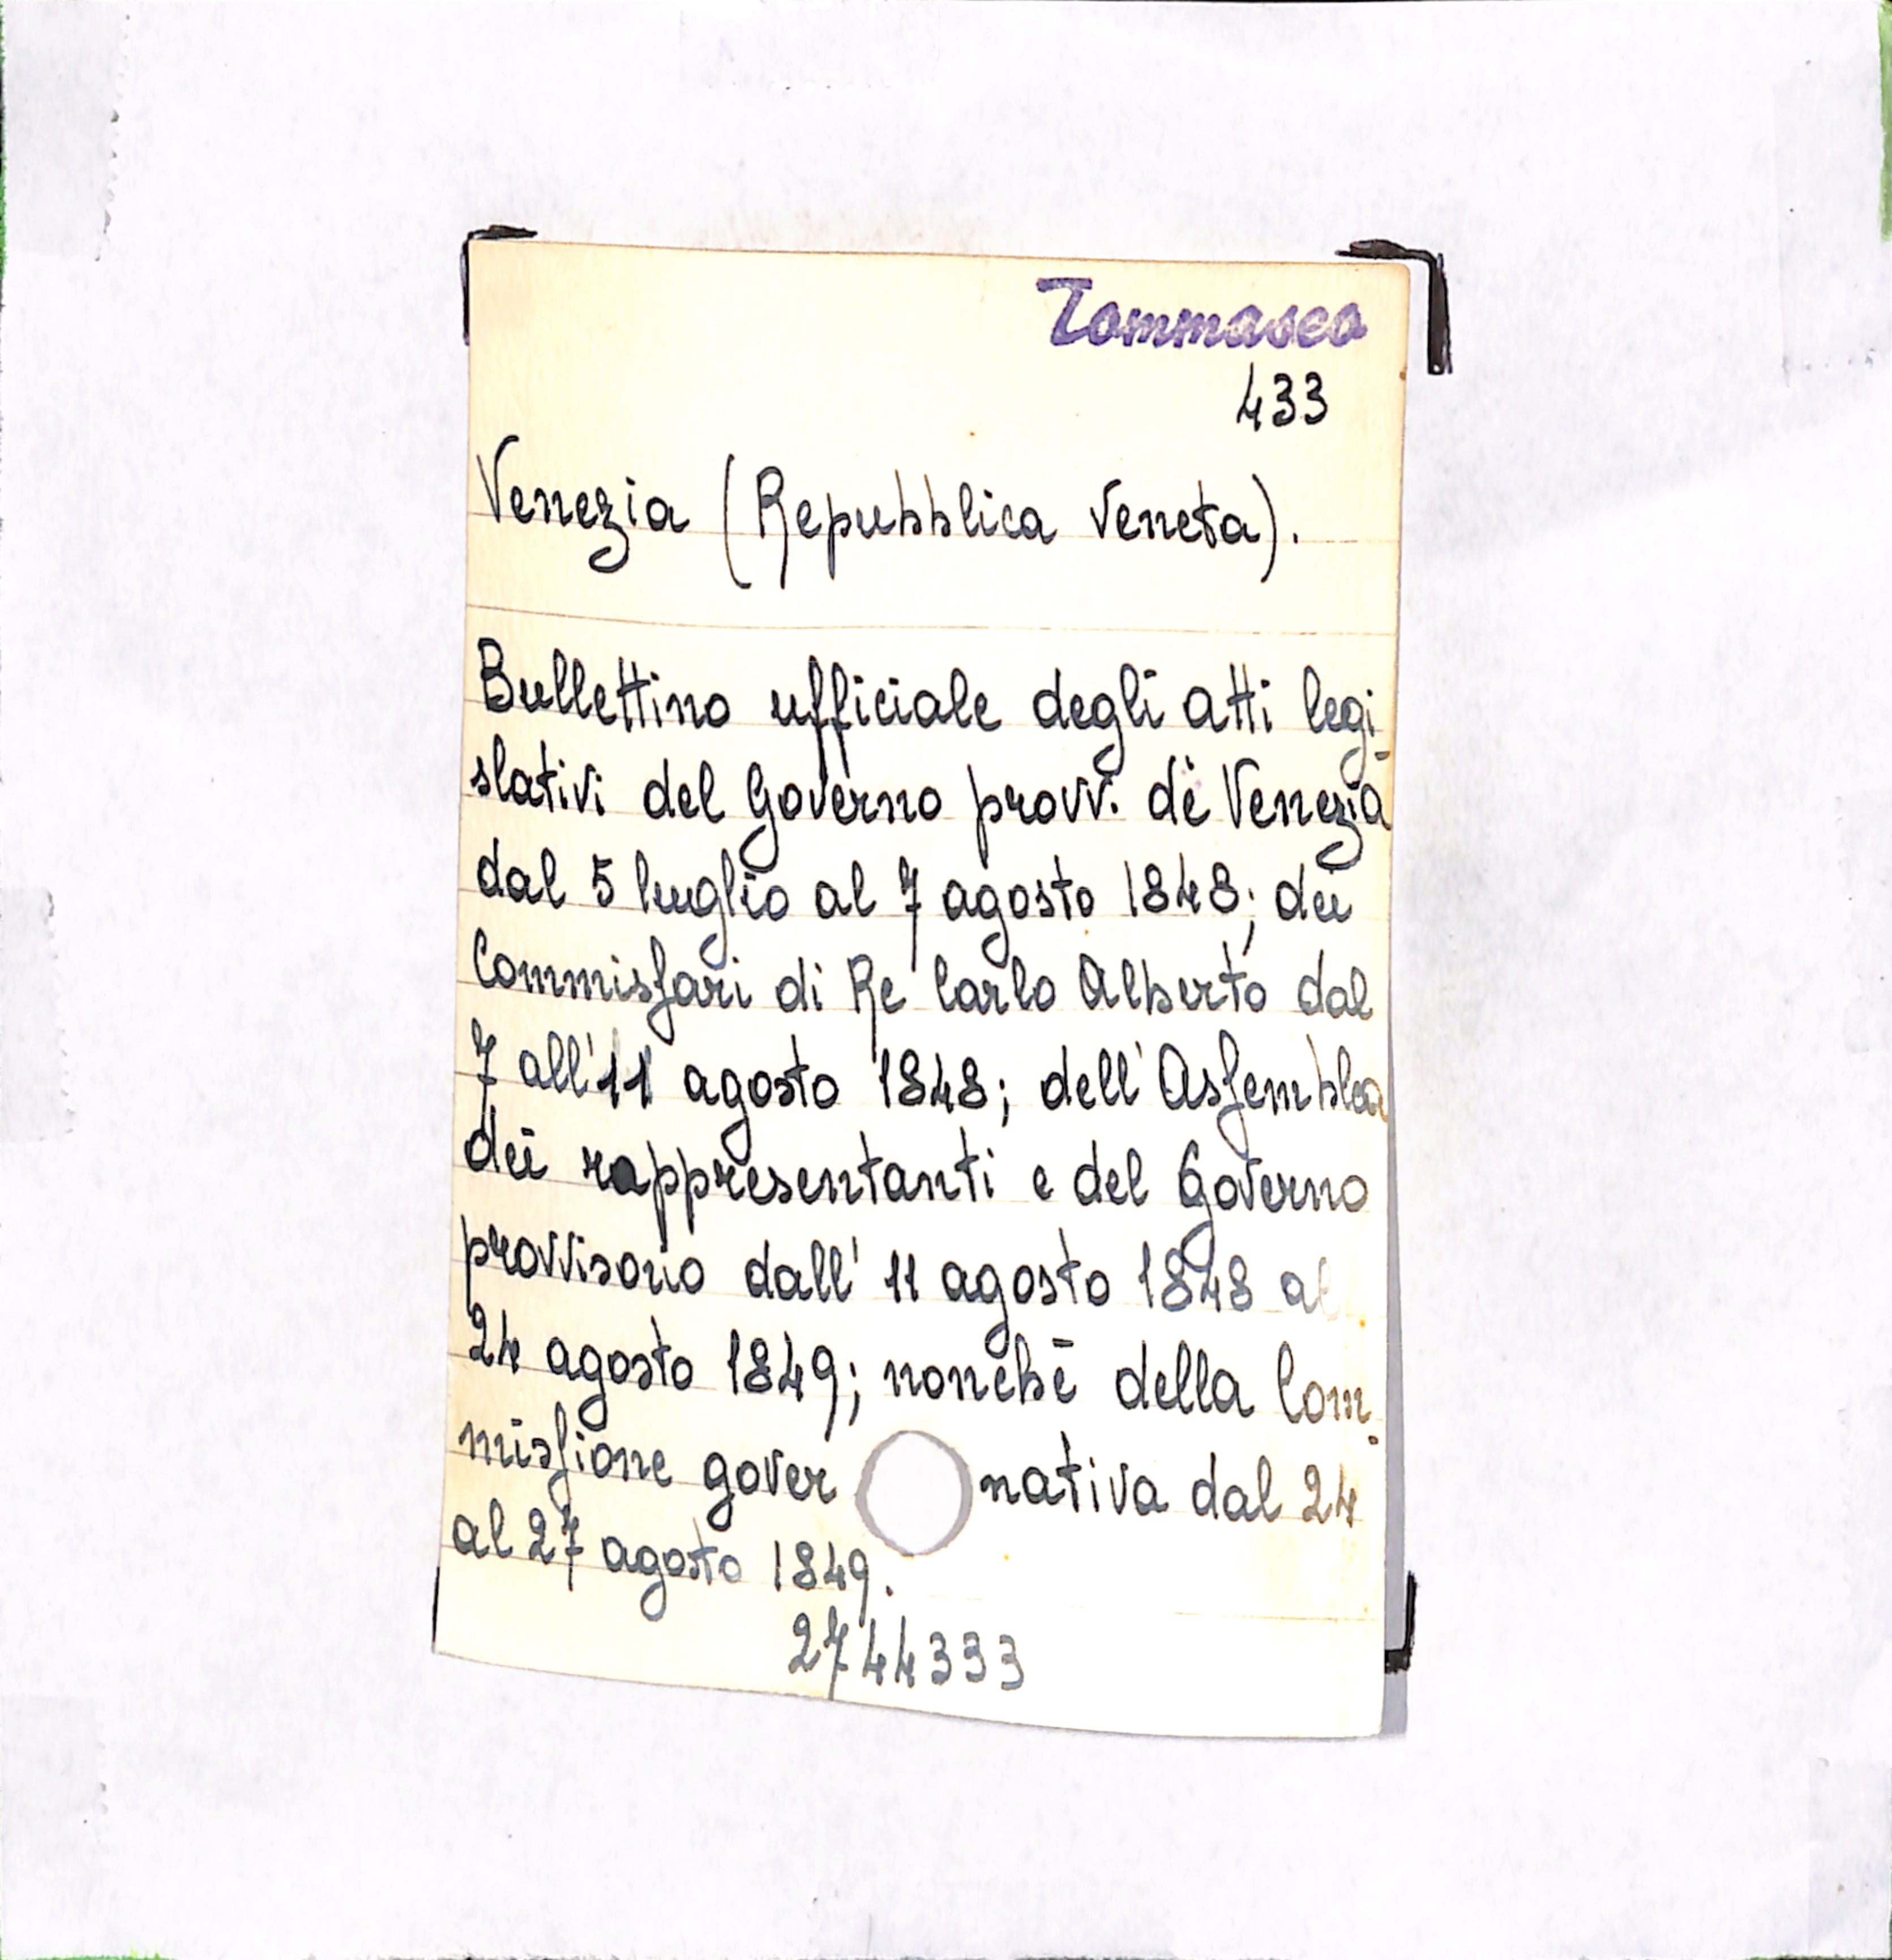 Tommaseo
433
Venezia (Repubblica Veneta).
Bullettino ufficiale degli atti legi-
slativi del Governo provv. di Venezia
dal 5 luglio al 7 agosto 1848; dei
Commisſari di Re Carlo Alberto dal
7 all'11 agosto 1848; dell'Asſemblea
dei rappresentanti e del Governo
provvisorio dall'11 agosto 1848 al
24 agosto 1849; nonchè della Com-
misſione governativa dal 24
al 27 agosto 1849.
2744333